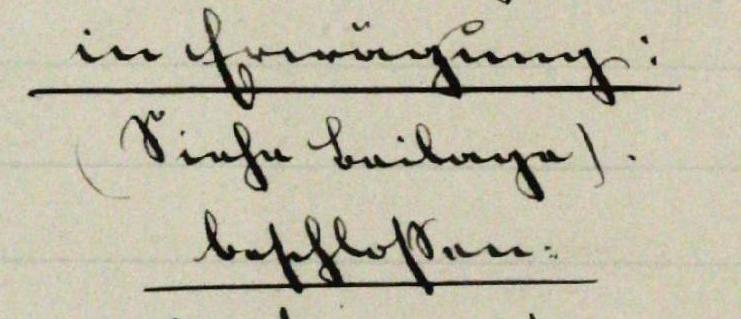 in Erwägung:
(Siehe Beilage).
beschlossen: